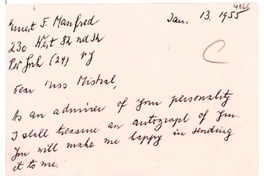 4166
Ernest F. Manfred
Jan. 13. 1955
230 West 82nd Str
New York (24) NY
Dear Miss Mistral,
As an admirer of your personality
I shall treasure an autograph of you.
You will make me happy in sending
it to me.